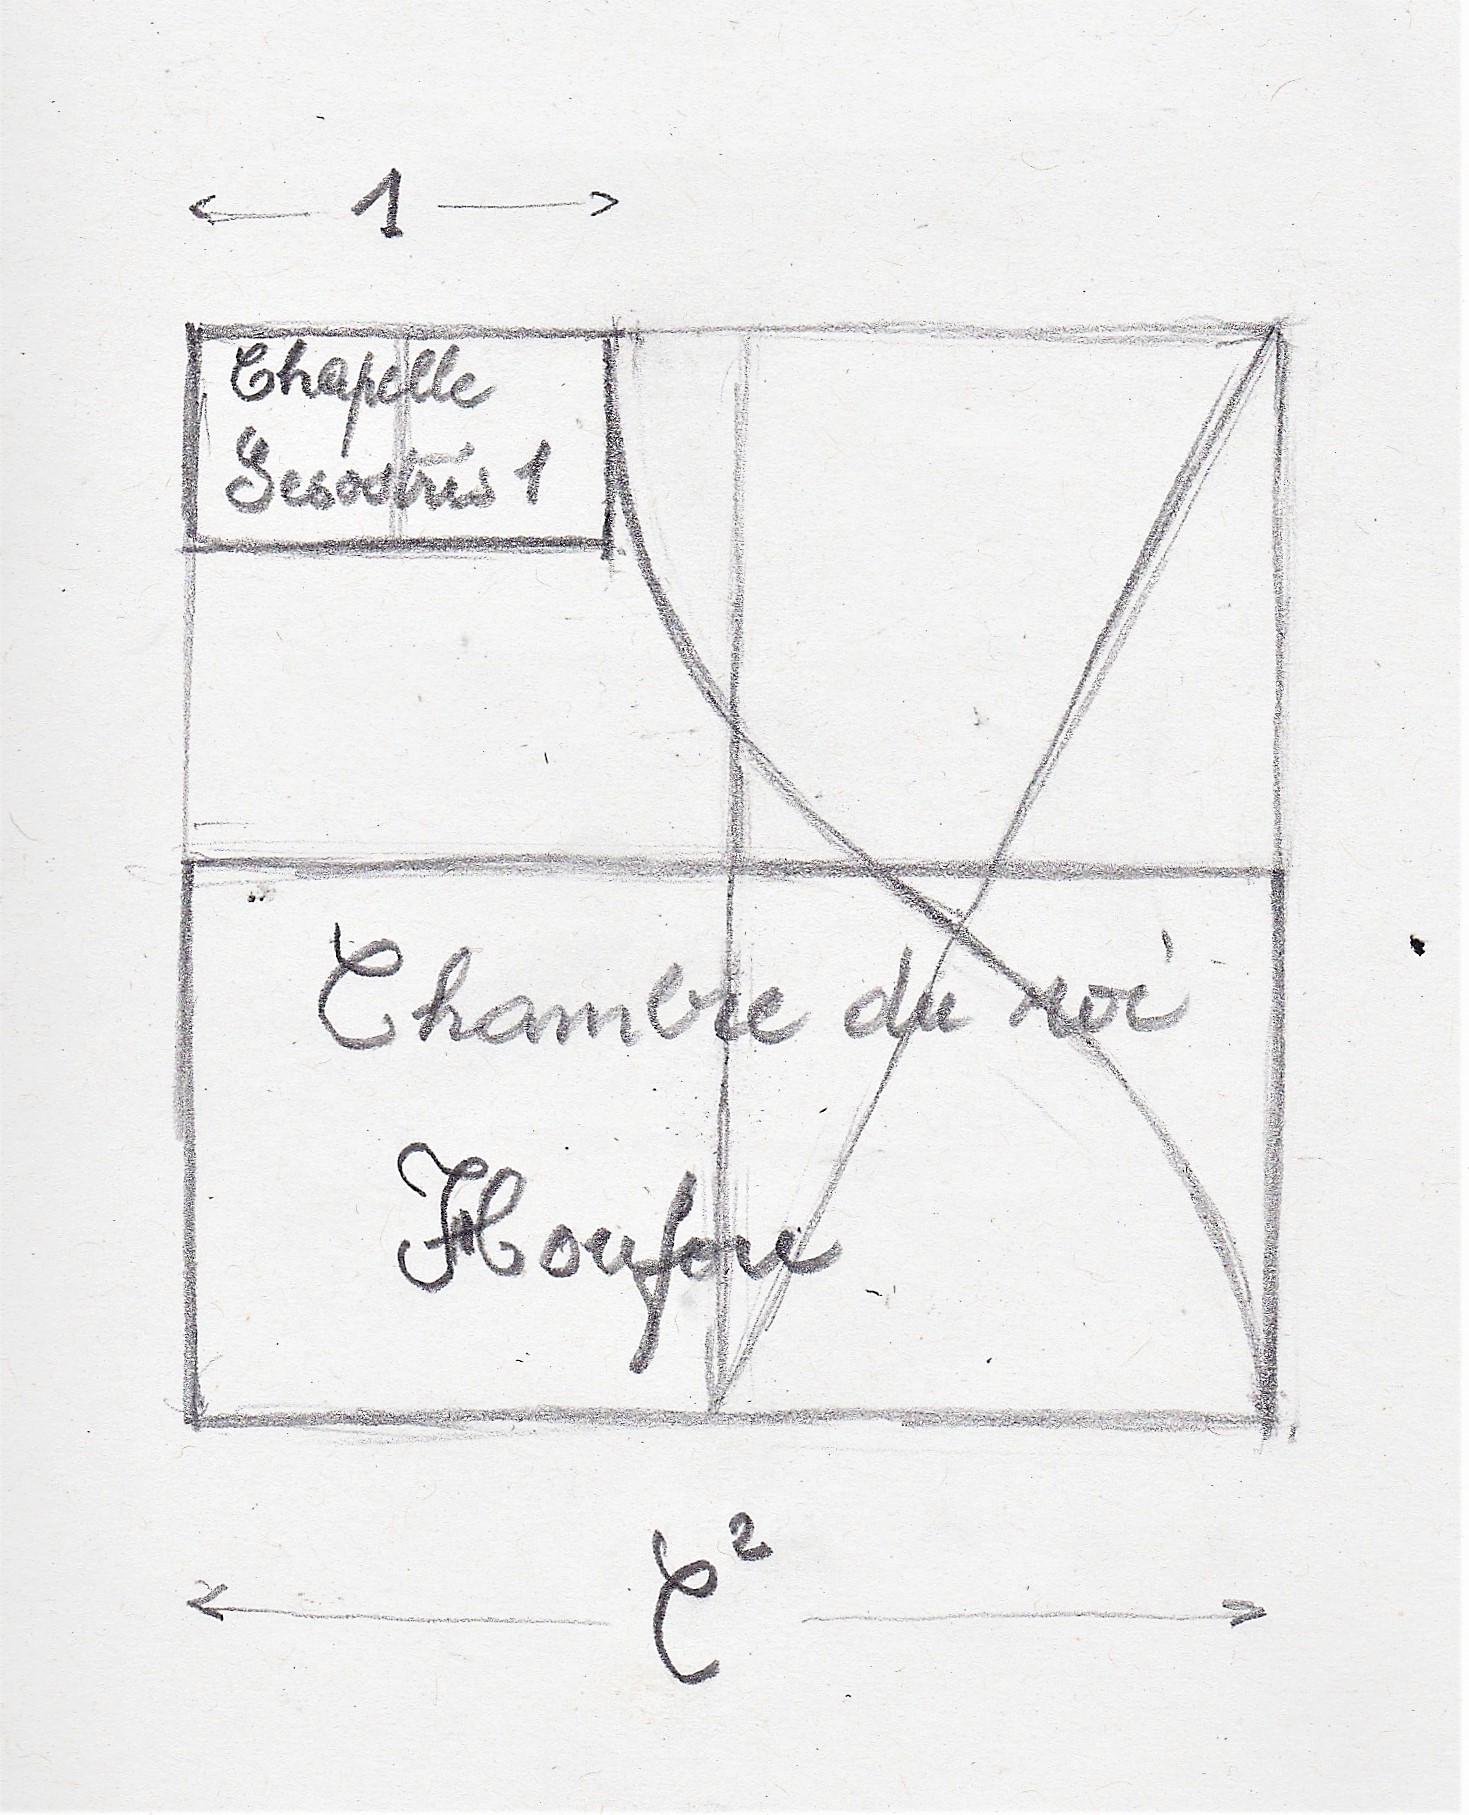 1
Chapelle
Sesostris 1
Chambre du roi
Houfou
ζ²